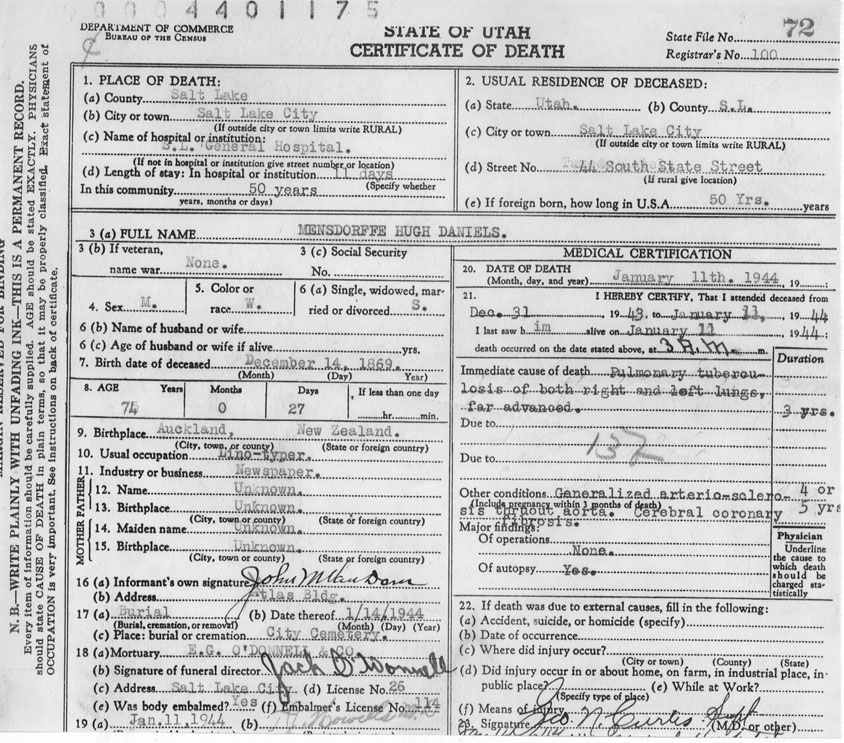 0004401175
DEPARTMENT OF COMMERCE
BUREAU OF THE CENSUS
STATE OF UTAH
CERTIFICATE OF DEATH
State File No. 72
Registrar's No. 100
N. B.—WRITE PLAINLY WITH UNFADING INK—THIS IS A PERMANENT RECORD.
Every item of information should be carefully supplied. AGE should be stated EXACTLY. PHYSICIANS
should state CAUSE OF DEATH in plain terms, so that it may be properly classified. Exact statement of
OCCUPATION is very important. See instructions on back of certificate.
1. PLACE OF DEATH:
(a) County Salt Lake
(b) City or town Salt Lake City
(If outside city or town limits write RURAL)
(c) Name of hospital or institution:
S.L. General Hospital.
(If not in hospital or institution give street number or location)
(d) Length of stay: In hospital or institution 11 days
In this community 50 years (Specify whether
years, months or days)
2. USUAL RESIDENCE OF DECEASED:
(a) State Utah. (b) County S.L.
(c) City or town Salt Lake City
(If outside city or town limits write RURAL)
(d) Street No. 44 South State Street
(If rural give location)
(e) If foreign born, how long in U.S.A. 50 Yrs. years
3 (a) FULL NAME MENSDORFFE HUGH DANIELS.
3 (b) If veteran,
name war None.
3 (c) Social Security
No.
4. Sex M.
5. Color or
race W.
6 (a) Single, widowed, mar-
ried or divorced S.
6 (b) Name of husband or wife
6 (c) Age of husband or wife if alive yrs.
7. Birth date of deceased December 14, 1869.
(Month) (Day) Year)
8. AGE Years Months Days If less than one day
74 0 27 hr. min.
9. Birthplace Auckland, New Zealand.
(City, town, or county) (State or foreign country)
10. Usual occupation Lino-typer.
11. Industry or business Newspaper.
FATHER
12. Name Unknown.
13. Birthplace Unknown.
(City, town or county) (State or foreign country)
MOTHER
14. Maiden name Unknown.
15. Birthplace Unknown.
(City, town or county) (State or foreign country)
16 (a) Informant's own signature
(b) Address Atlas Bldg.
17 (a) Burial (b) Date thereof 1/14/1944
(Burial, cremation, or removal) (Month) (Day) (Year)
(c) Place: burial or cremation City Cemetery.
18 (a) Mortuary E.G. O'DONNELL & CO.
(b) Signature of funeral director Jack O'Donnell
(c) Address Salt Lake City (d) License No. 26
(e) Was body embalmed? Yes (f) Embalmer's License No. 114
19 (a) Jan.11 1944 (b)
MEDICAL CERTIFICATION
20. DATE OF DEATH
(Month, day, and year) January 11th. 1944, 19
21. I HEREBY CERTIFY, That I attended deceased from
Dec. 31, 1943, to January 11, 1944
I last saw him alive on January 11 1944;
death occurred on the date stated above, at 3 A.M. m.
Duration
Immediate cause of death Pulmonary tubercu-
losis of both right and left lungs,
far advanced. 3 yrs.
Due to
137
Due to
Other conditions Generalized arterio-sclero- 4 or
(Include pregnancy within 3 months of death)
sis thruout aorta. Cerebral coronary 5 yrs
fibrosis.
Major findings:
Of operations
None.
Of autopsy Yes.
Physician
Underline
the cause to
which death
should be
charged sta-
tistically
22. If death was due to external causes, fill in the following:
(a) Accident, suicide, or homicide (specify)
(b) Date of occurrence
(c) Where did injury occur?
(City or town) (County) (State)
(d) Did injury occur in or about home, on farm, in industrial place, in
public place? (e) While at Work?
(Specify type of place)
(f) Means of injury
23. Signature Geo N Curtis Supt
(M.D. or other)